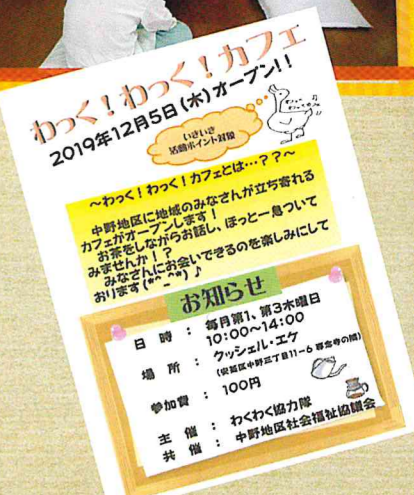 わっく！わっく！カフェ
2019年12月5日(木)オープン!!
いきいき
活動ポイント対象
～わっく！わっく！カフェとは…？？～
中野地区に地域のみなさんが立ち寄れる
カフェがオープンします！
お茶をしながらお話し、ほっと一息ついて
みませんか！？
みなさんにお会いできるのを楽しみにして
おります(*^_^*)♪
お知らせ
日　時　：　毎月第1、第3木曜日
10:00～14:00
場　所　：　クッシェル・エケ
(安芸区中野三丁目11-6 専念寺の隣)
参加費　：　100円
主　催　：　わくわく協力隊
共　催　：　中野地区社会福祉協議会